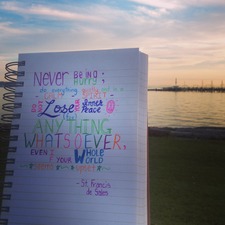 Never Being
Hurry;
do everything
Do Not Lose Your Inner Peace
for
ANYTHING
WHATSOEVER,
EVEN IF YOUR Whole World
seems upset
- St. Francis
de Sales